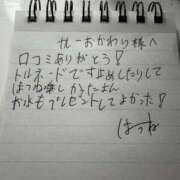 せーおかわり様へ
口コミありがとう!
トルネードです攻めしたりして
はつね楽しかったよん
お水もプレゼントしてよかった!
はつね